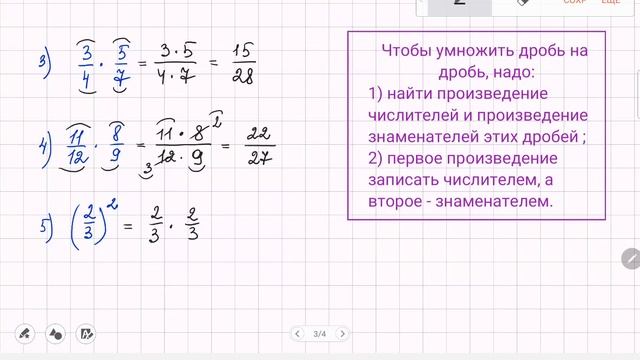 СОХР ЕЩЁ
3) 3/4 · 5/7 = 3·5/4·7 = 15/28
4) 11/12 · 8/9 = 11·8²/₃12·9 = 22/27
5) (2/3)² = 2/3 · 2/3
Чтобы умножить дробь на
дробь, надо:
1) найти произведение
числителей и произведение
знаменателей этих дробей ;
2) первое произведение
записать числителем, а
второе - знаменателем.
3/4